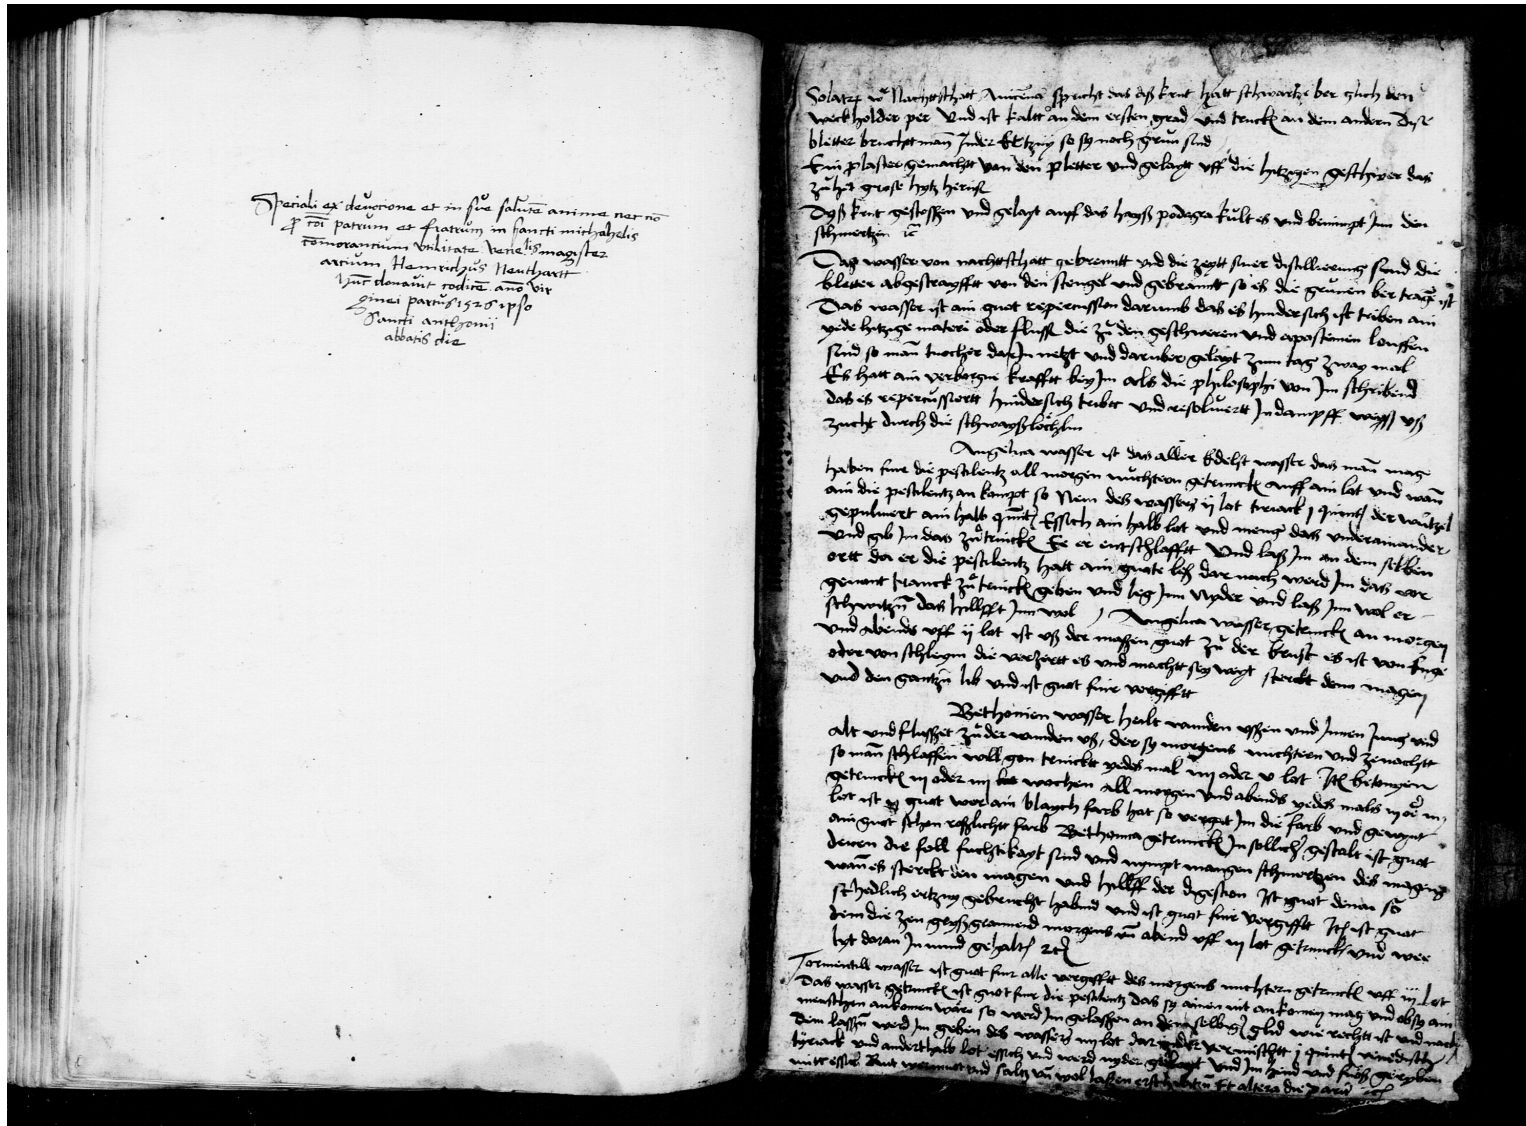 Speciali ex devocione et in sue salutē anime nec nō
p̱ cōi patrum et fratrum in sancti michahelis
cōmorancium utilitate Venelis magister
arcium Heinrichus Neuthartt
hūc donavit codicē anō vir
ginei partus 1526 ipso
Sancti anthonii
abbatis die
Solatrū Nachttschatt Avicenna spricht das diß krut hatt schwartze ber glich den
weckholder per Und ist kaltt an dem ersten grad und trucken an dem andern Dise
bletter brucht man Inder Ertzny so sy noch grün sind
Ein plaster gemachtt von den pletter und gelaytt uff die hitzigen geschwer das
zühet grose hytz heruß
Dyß krut gestossen und gelayt auff das hayß podagra kült es und benimpt Im den
schmertzen
Das wasser von nachttschatt gebrenntt und die zeytt siner distillierung sind die
bletter abgestrayfftt von den stengel und gebranntt so es die grünen ber trage ist
Das wasser ist ain guot repercussion darumb das es hindersich ist triben ain
yede hitzige materi oder flüß die zů den geschweren und apostemen louffen
sind so man tuocher darIn netzt und daruber gelayt zum tag zway mal
Es hatt ain verborgne krafftt bey Im als die philosophi von Im schribend
das es repercussiertt hindersich tribtt und resolviertt In dampff wyß uß
zücht durch die schwayßlöchlin
Angelica wasser ist das aller Edelst wasser das man mage
haben fur die pestilentz all morgen nüchtern getrincken auff ain lot und wan
ain die pestilentz an kompt so Nem des wassers ij lot tiriack j quint der wurtzel
gepulvert ain halb quint Essich ain halb lot und meng das underainander
und gib Im das zů trincken Ee er entschlafftt Und laß Im an dem selben
ortt da er die pestilentz hatt ain guote leß dar nach werd Im das vor
genant tranck zů trincken geben und leg Inn Nyder und laß Im wol er
schwitzen das hillfft Inn wol Angelica wasser getruncken an morgen
und Abends uff ij lot ist uß der massen guot zů der brust es ist von Enge
oder von schlegm die verzertt es und machtt sey weyt sterckt dem magen
und den gantzen lib und ist guot fur vergifftt
Bethonien wasser heilt wunden ussen und Innen Jung und
alt und flusset zů der wunden uß, der sy morgens nuchtern und ze nachtt
so man schlaffen will gon trincktt yedes mal iiij oder v lot Itē betonyen
getruncken iij oder iiij wochen all morgen und abends yedes mals ij oder iij
lot ist guot wer ain blaych farb hat so vergat Im die farb und gewynt
ain guot schon rößlichtt farb Bethonica getruncken In sollicher gestalt ist guot
denen die foll fuchtikayt sind und nympt mangen schmertzen des magens
wan es sterckt den magen und hillff der digestion Ist guot denen so
schedlich ertzny gebrucht habend und ist guot fur vergifftt Itē ist guot
dem die zen morgens und abend uff iij lot getruncken und wee
lyt daran In mund gehalten
Tormentill wasser ist guot fur alle vergifftt des morgens nuchtern getruncken uff iij lot
Das wasser getruncken ist guot fur die pestilentz das sy ainen nit an komen mag und ob sy ain
menschen ankomen wäre so werd Im gelassen an dem selbigen glid wie recht ist und nach
dem lassen werd Im geben des wassers iiij lot dar under vermischtt j quint venedisch
tyriack und anderthalb lot essich und werd nyder gelegt Und Im hend und füeß geryben
mitt essich Rut wermuott und saltz und wol lassen erschwitzen Et altera die